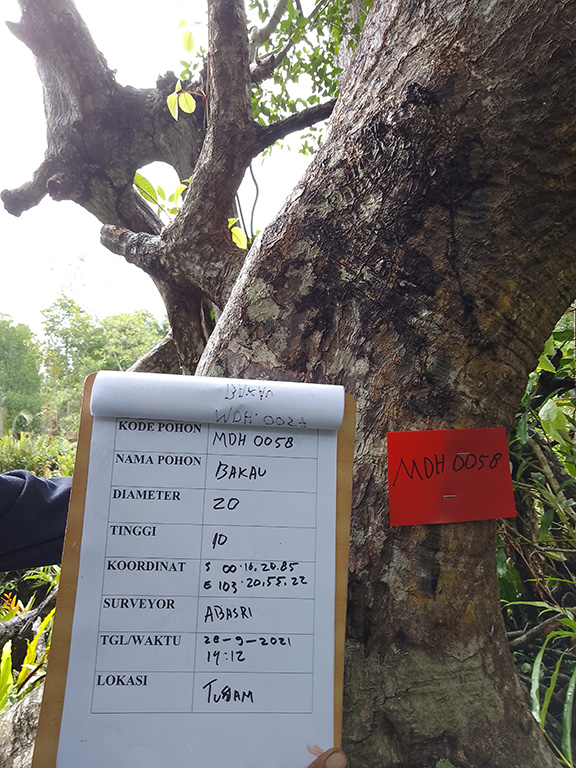 KODE POHON MDH 0058
NAMA POHON BAKAU
DIAMETER 20
TINGGI 10
KOORDINAT S 00.16.20.85
E 103.20.55.22
SURVEYOR ABASRI
TGL/WAKTU 28-9-2021
14:12
LOKASI
MDH 0058